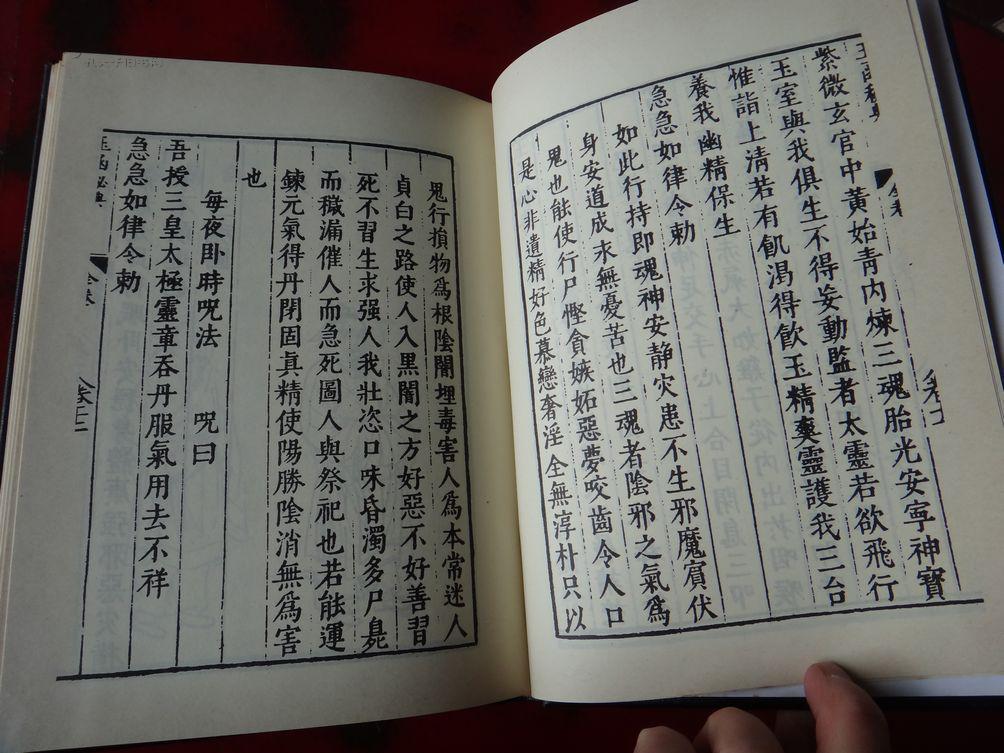 紫微玄官中黃始青內煉三魂胎光安寧神寶
玉室與我俱生不得妄動監者太靈若欲飛行
惟詣上清若有飢渴得飲玉精爽靈護我三台
養我幽精保生
急急如律令勅
如此行持即魂神安静灾患不生邪魔賓伏
身安道成永無憂苦也三魂者陰邪之氣為
鬼也能使行尸慳貪嫉妬惡夢咬齒令人口
是心非遺精好色慕戀奢淫全無淳朴只以
鬼行損物為根陰闇埋毒害人為本常迷人
貞白之路使人入黒闇之方好惡不好善習
死不習生求强人我壯恣口味昏濁多尸臰
而穢漏催人而急死圖人與祭祀也若能運
鍊元氣得丹閉固真精使陽勝陰消無為害
也
每夜卧時呪法　呪曰
吾授三皇太極靈章吞丹服氣用去不祥
急急如律令勅